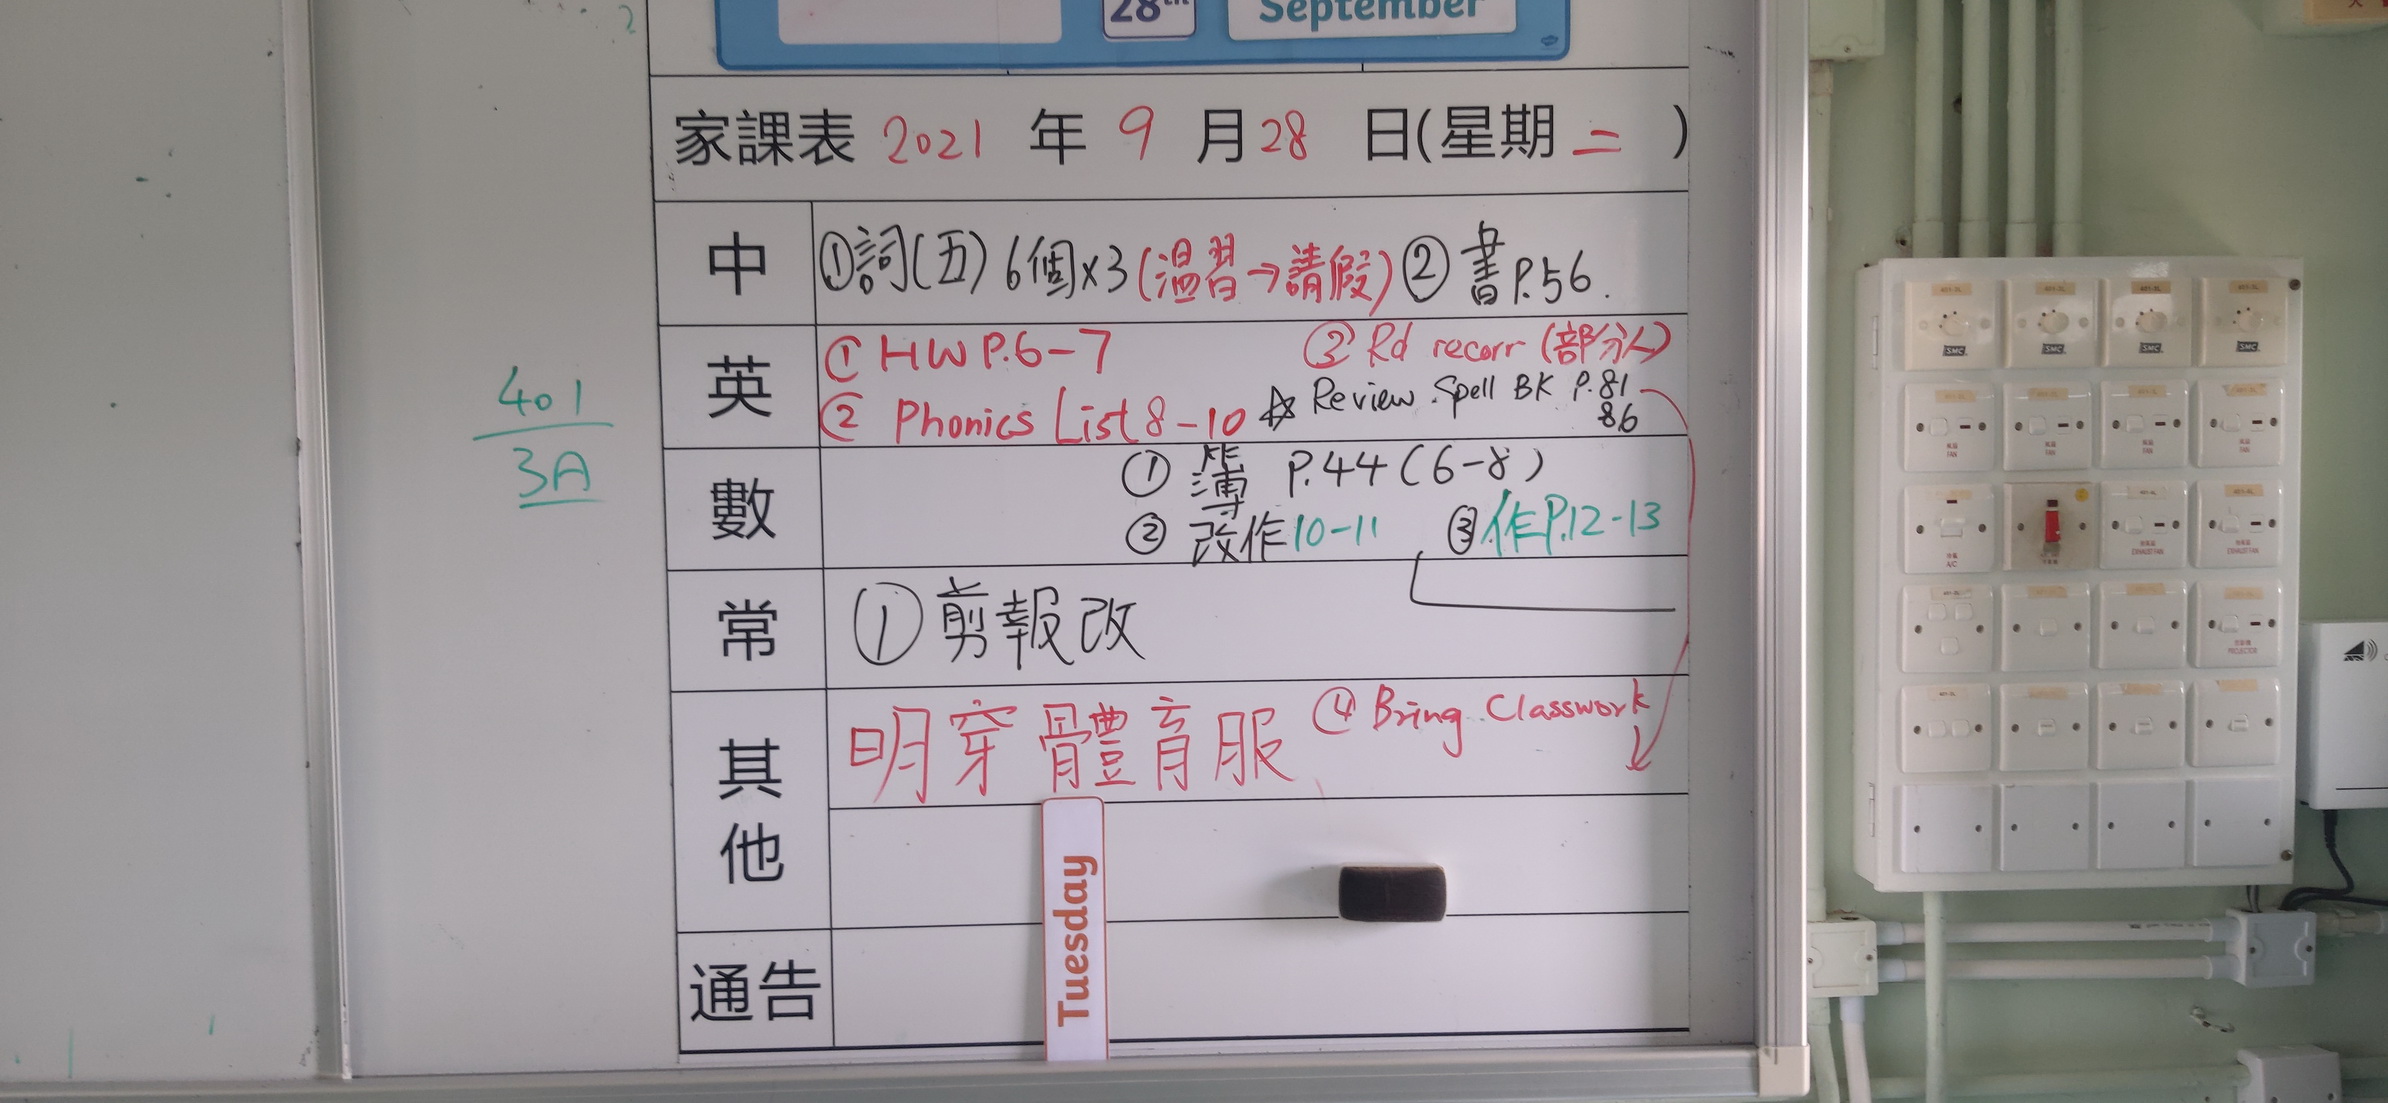 28th September
家課表 2021 年 9 月 28 日(星期 二 )
中 ①詞(五) 6個×3(温習→請假) ② 書P.56.
英 ① HW P.6-7 ③ Rd recorr (部分人)
② Phonics List 8-10 ☆ Review Spell BK P.81
86
數 ① 簿 P.44 (6-8)
② 改作10-11 ③作P.12-13
常 ① 剪報改
其他 明穿體育服 ④ Bring Classwork
Tuesday
通告
401
3A
SMC SMC SMC SMC
FAN FAN FAN FAN
A/C EXHAUST FAN EXHAUST FAN
PROJECTOR